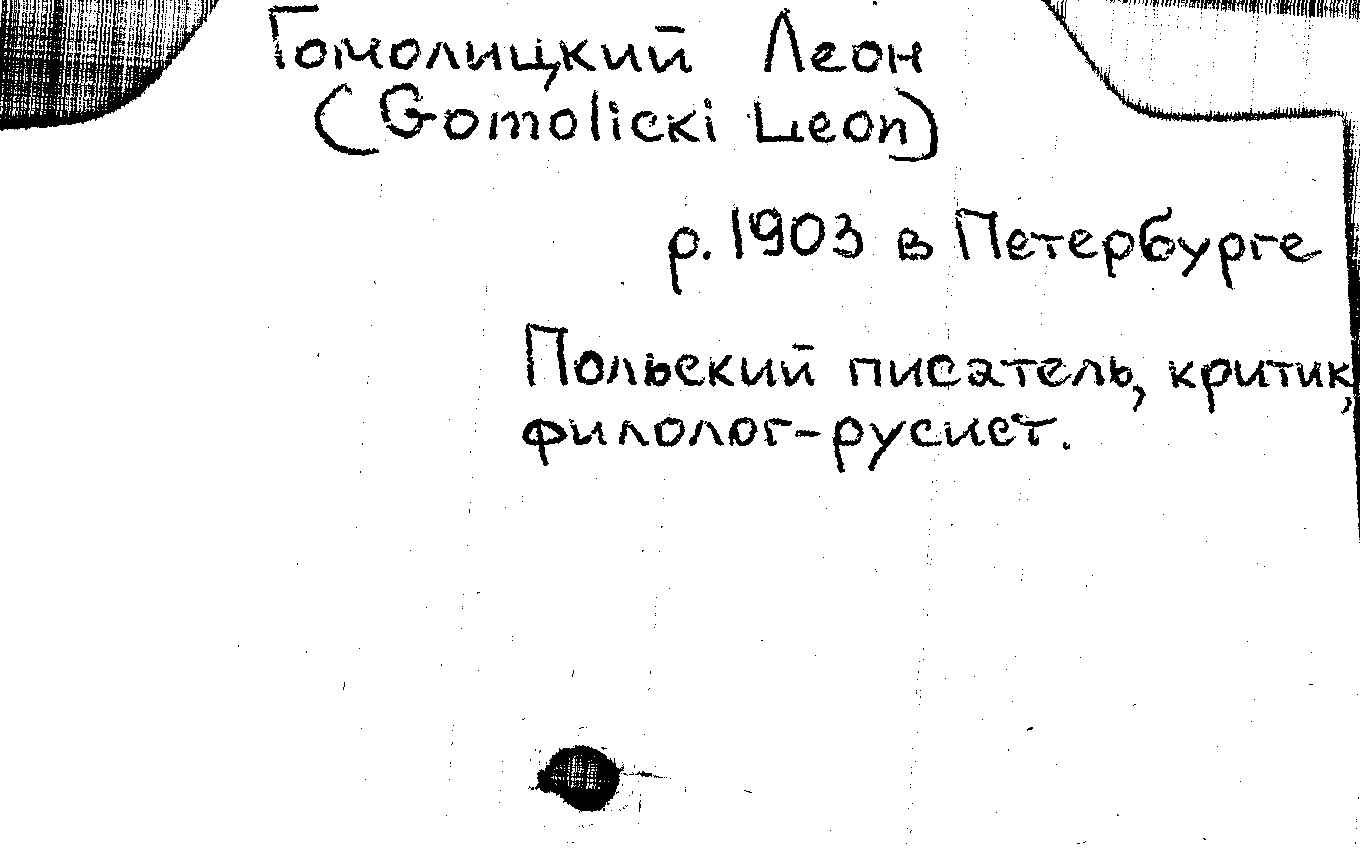 Гомолицкий Леон
(Gomolicki Leon)
р. 1903 в Петербурге
Польский писатель, критик,
филолог-русист.